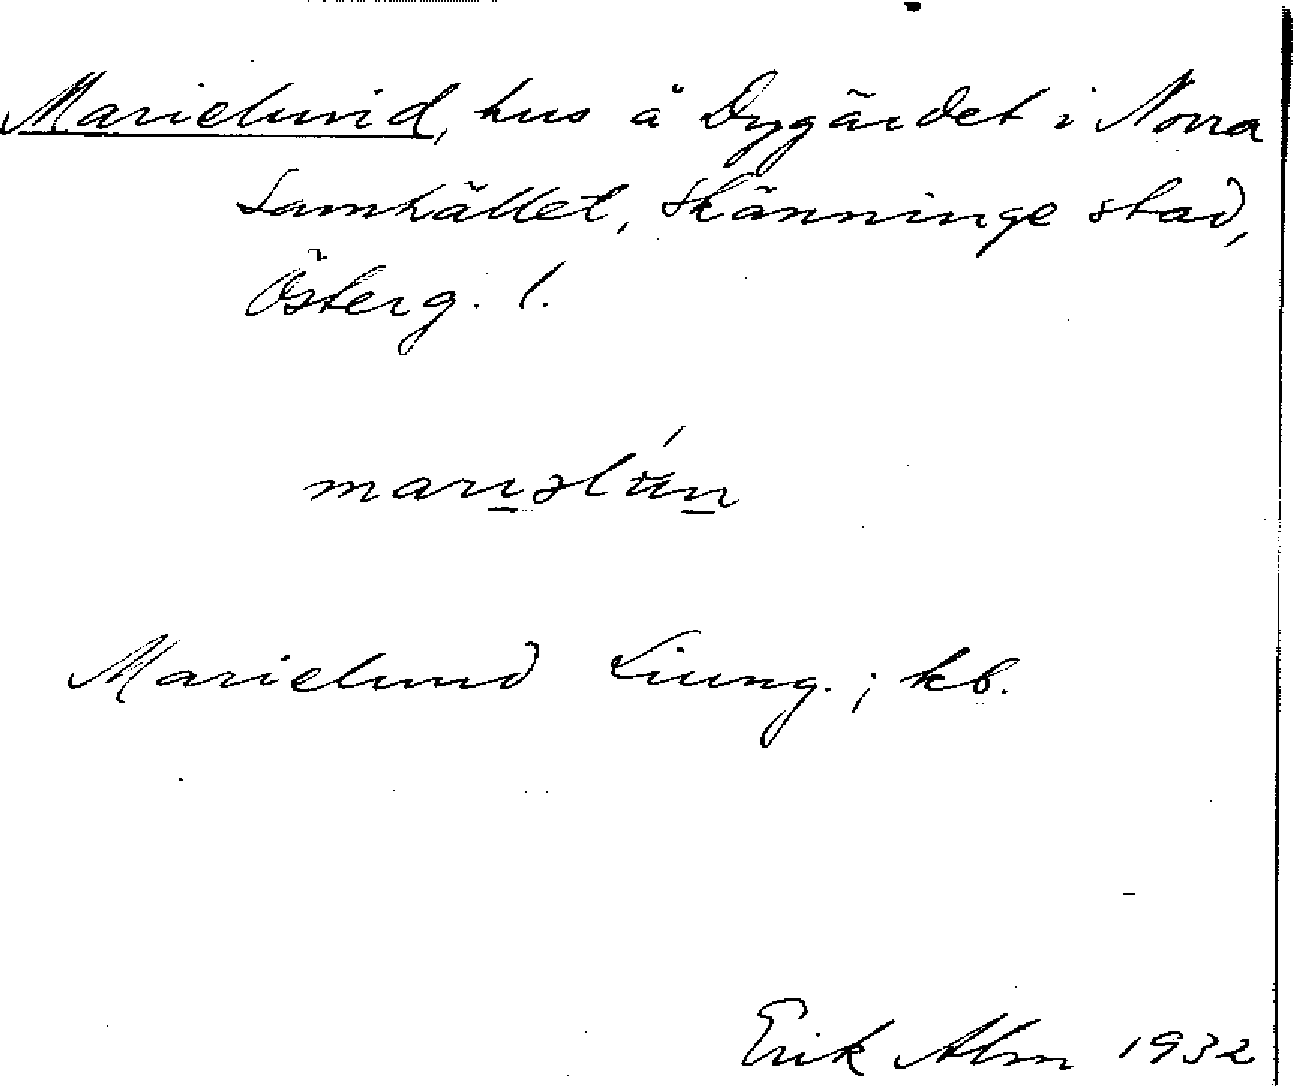 Marielund, hus å Dygärdet i Norra
Samhället, Skänninge stad,
Österg. l.
marıəlún
Marielund Liung.; kb.
Erik Alm 1932